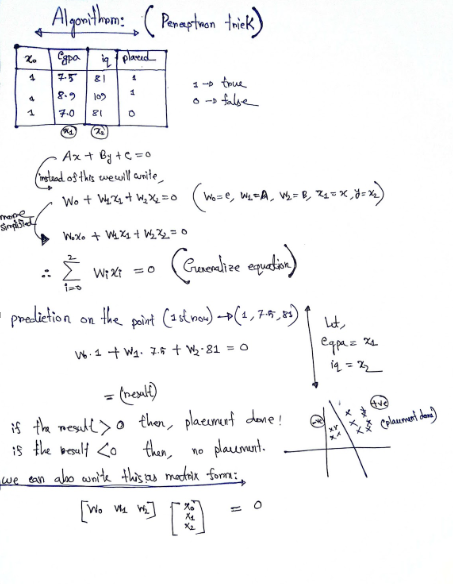 Algorithm: (Perceptron trick)
x₀ cgpa iq placed
1 7.5 81 1
1 8.9 109 1
1 7.0 81 0
x₁ x₂
1 → true
0 → false
Ax + By + c = 0
(instead of this we will write,
W₀ + W₁x₁ + W₂x₂ = 0 (W₀=c, W₁=A, W₂=B, x₁=x, y=x₂)
more simplified
W₀x₀ + W₁x₁ + W₂x₂ = 0
∴ 2∑i=0 Wixi = 0 (Generalize equation)
prediction on the point (1st row) → (1, 7.5, 81)
Let,
cgpa = x₁
iq = x₂
W₀·1 + W₁·7.5 + W₂·81 = 0
= (result)
if the result > 0 then, placement done!
is the result < 0 then, no placement.
+ve
(placement done)
we can also write this as matrix form:
[W₀ W₁ W₂] [x₀ x₁ x₂] = 0